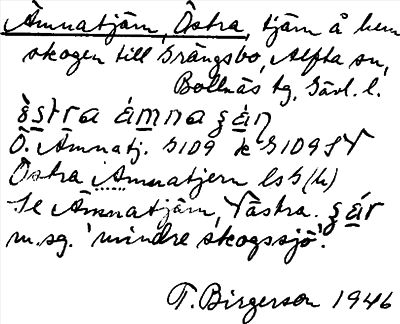 Åmnatjärn, Östra, tjärn å hem
skogen till Grängsbo, Alfta sn,
Bollnäs tg, Gävl. l.
Ö. Åmnatj. G109 k G109 SV
Östra Åmnatjern ls G (h)
Se Åmnatjärn, Västra.
m.sg. 'mindre skogssjö'.
T. Birgerson 1946